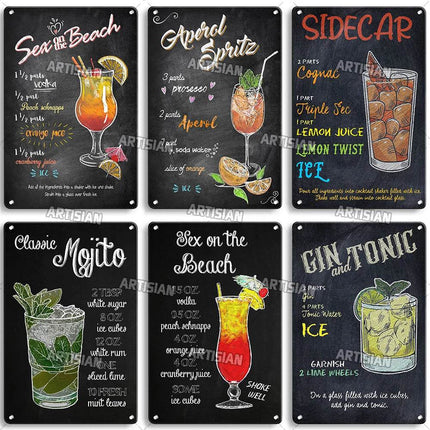 Sex on
the Beach
1 ½ parts
vodka
½ part
Peach schnapps
1 ½ parts
orange juice
1 ½ parts
cranberry juice
ICE
Add all the ingredients into a shaker with ice and shake.
Strain into a glass over fresh ice.
ARTISIAN
Aperol
Spritz
3 parts
prosecco
2 parts
Aperol
1 part
soda water
slice of orange
ICE
ARTISIAN
SIDECAR
2 PARTS
Cognac
1 PART
Triple Sec
1 PART
LEMON JUICE
LEMON TWIST
ICE
Pour all ingredients into cocktail shaker filled with ice.
Shake well and strain into cocktail glass.
ARTISIAN
Classic
Mojito
2 TBSP
white sugar
8 OZ
ice cubes
12 OZ
white rum
ONE
sliced lime
10 FRESH
mint leaves
ARTISIAN
Sex on the
Beach
1.5 OZ
vodka
0.5 OZ
peach schnapps
4 OZ
orange juice
4 OZ
cranberry juice
SOME
ice cubes
SHAKE
WELL
ARTISIAN
GIN and TONIC
PARTS
Gin
4 PARTS
Tonic Water
ICE
GARNISH
2 LIME WHEELS
In a glass filled with ice cubes,
add gin and tonic.
ARTISIAN